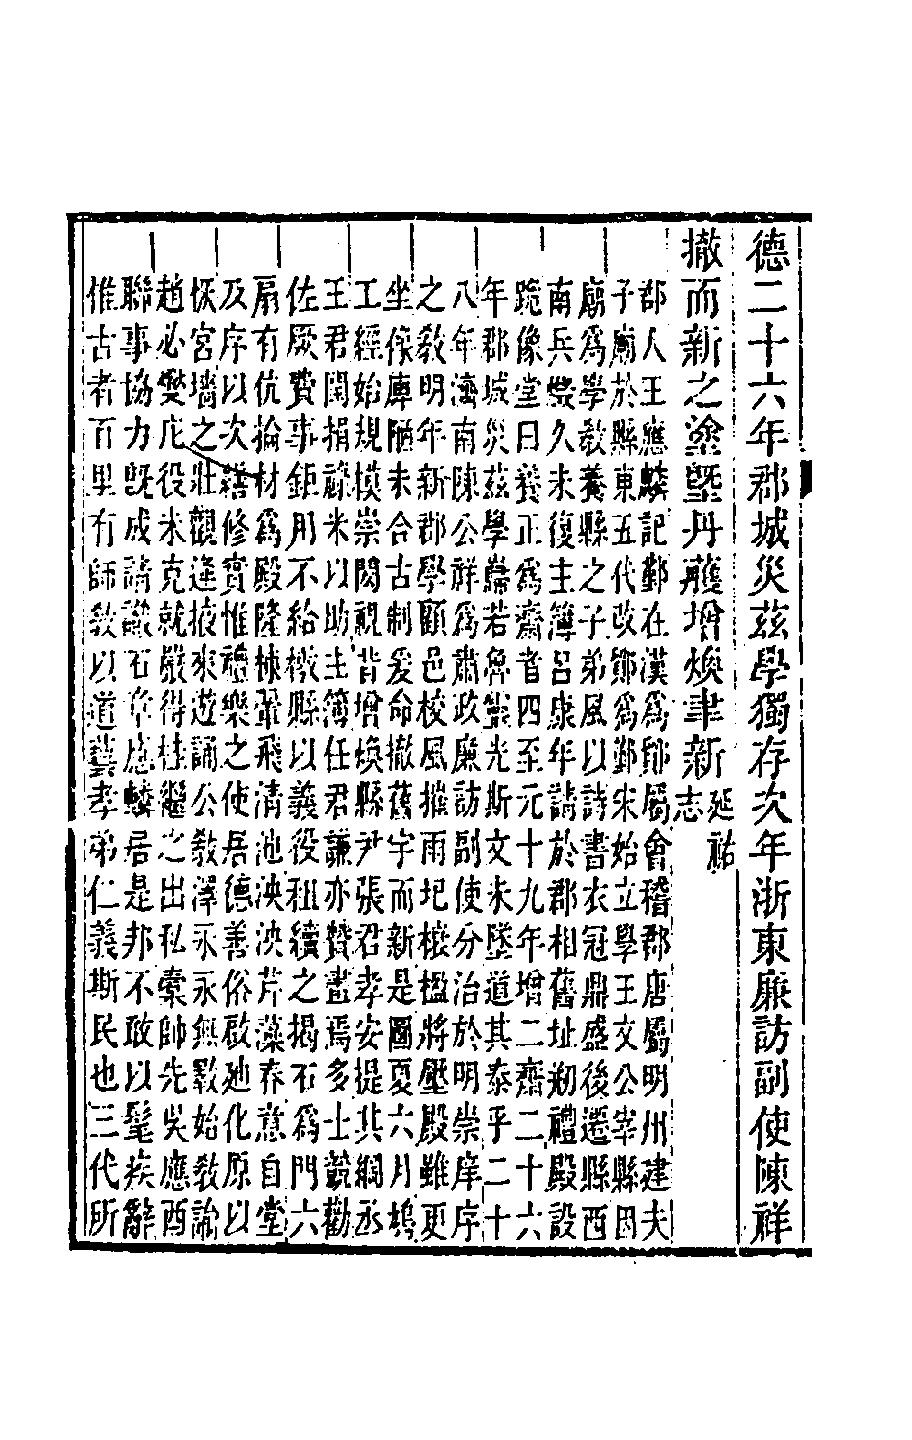 德二十六年郡城災茲學獨存次年浙東廉訪副使陳祥
撤而新之塗墍丹雘增煥聿新延祐志
郡人王應麟記鄞在漢為鄮屬會稽郡唐屬明州建夫
子廟於縣東五代改鄮為鄞宋始立學王文公宰縣因
廟為學教養縣之子弟風以詩書衣冠鼎盛後遷縣西
南兵燬久未復主簿呂康年請於郡相舊址剏禮殿設
跪像堂曰養正為齋者四至元十九年增二齋二十六
年郡城災茲學巋若魯靈光斯文未墜道其泰乎二十
八年濟南陳公祥為肅政廉訪副使分治於明崇庠序
之教明年新郡學顧邑校風摧雨圮榱楹將壓殿雖更
坐像庳陋未合古制爰命撤舊宇而新是圖夏六月鳩
工經始規模崇閎視昔增煥縣尹張君孝安提其綱丞
王君閏捐祿米以助主簿任君謙亦贊畫焉多士競勸
佐厥費事鉅用不給檄縣以義役租續之揭石為門六
扇有伉掄材為殿隆棟翬飛清池泱泱芹藻春意自堂
及序以次繕修實惟禮樂之使居德善俗啟迪化原以
恢宮牆之壯觀逢掖來遊誦公教澤永永無斁始教諭
趙必樊庀役未克就嚴得桂繼之出私槖帥先吳應酉
聯事協力既成請識石章應麟居是邦不敢以髦疾辭
惟古者百里有師教以道藝孝弟仁義斯民也三代所